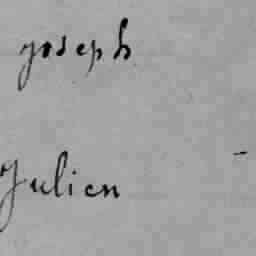 joseph
Julien -